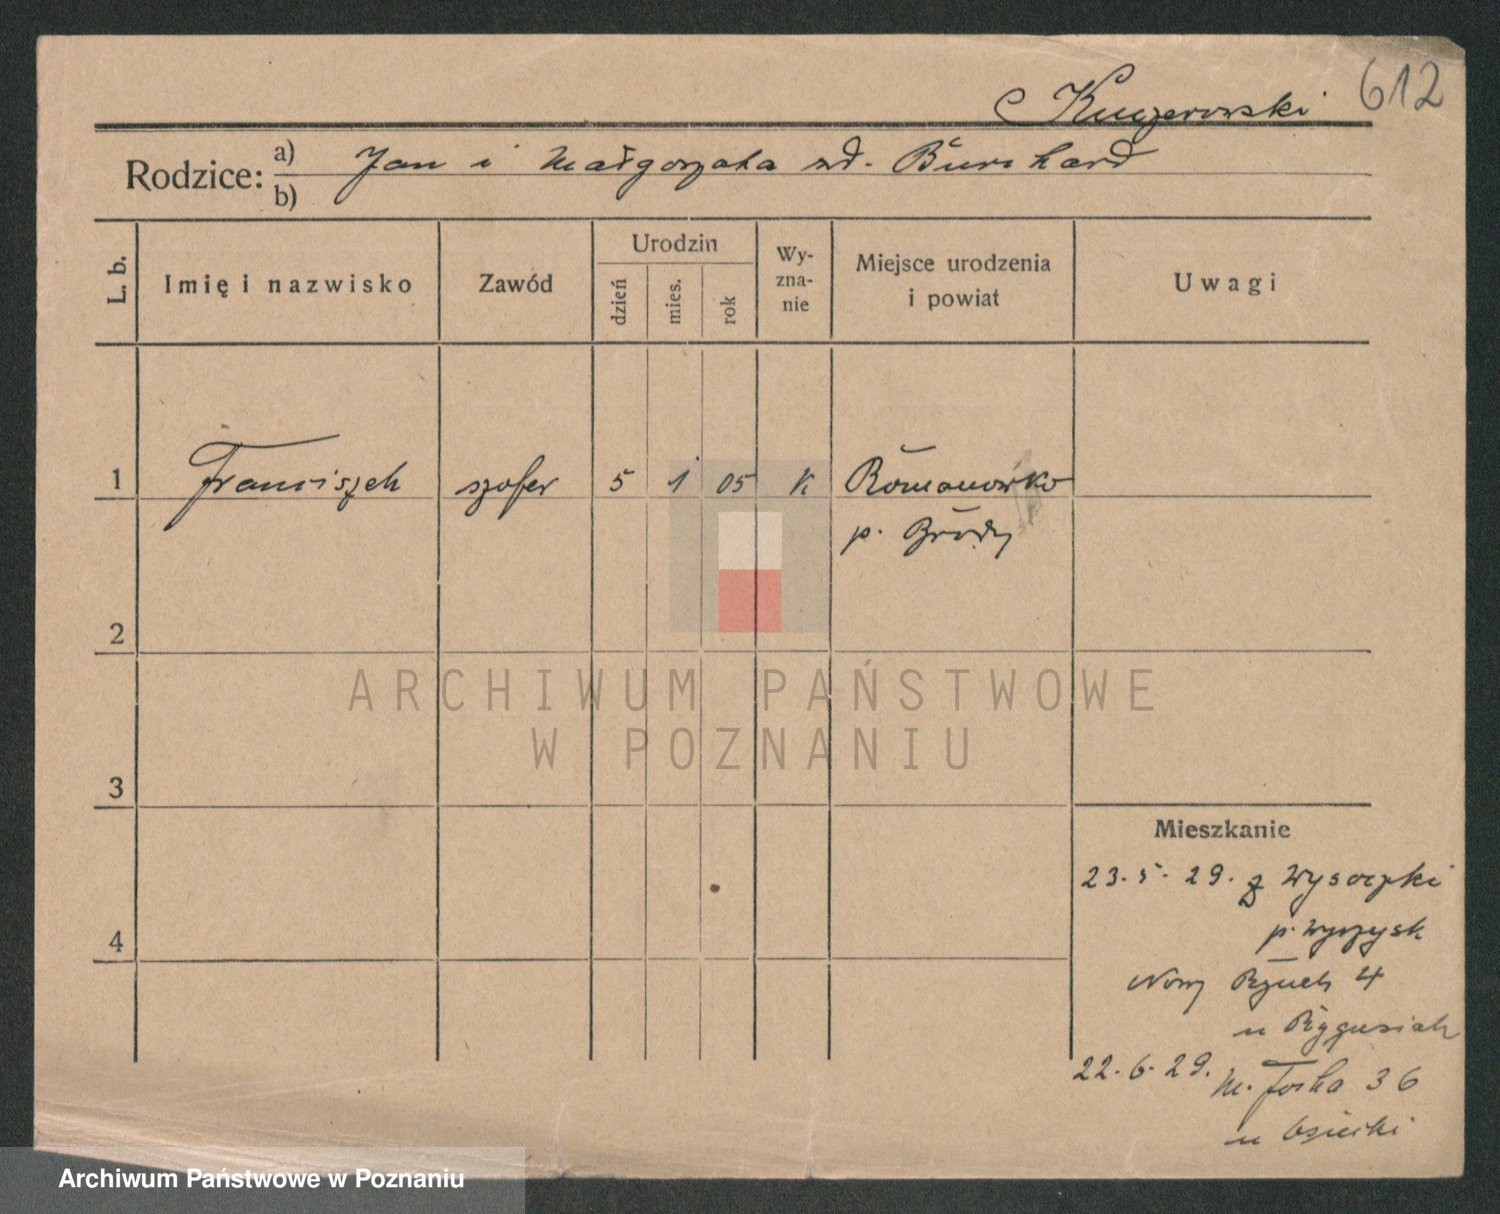 612
Kuczerowski
Rodzice: a) Jan i Małgorzata zd. Burchard
b)
L. b.
Imię i nazwisko
Zawód
Urodzin
dzień
mies.
rok
Wy-
zna-
nie
Miejsce urodzenia
i powiat
Uwagi
1 Franciszek szofer 5 1 05 K Romanowko
p. Brody
2
ARCHIWUM PAŃSTWOWE
W POZNANIU
3
Mieszkanie
23. 5. 29. z Wysoczki
p. Wyrzysk
4
Nowy Rynek 4
u
22. 6. 29. m. Focha 36
u Osiecki
Archiwum Państwowe w Poznaniu